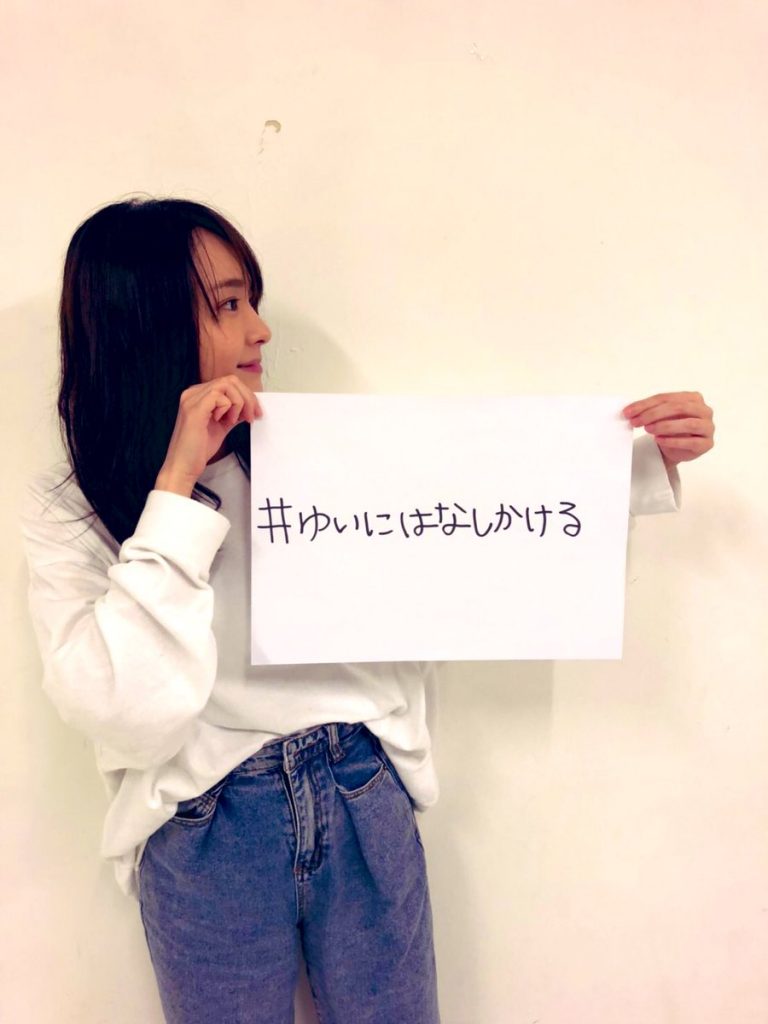 #ゆいにはなしかける